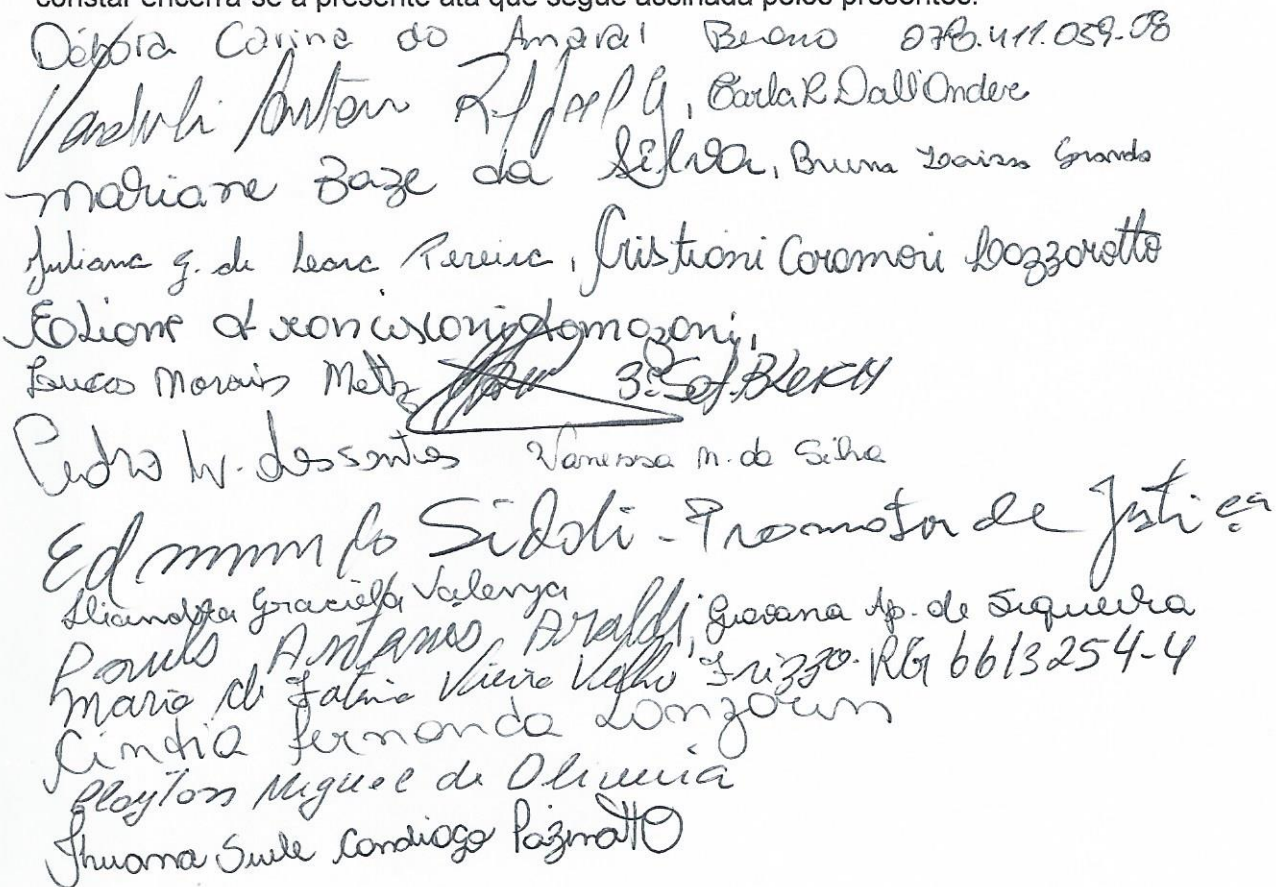 constar encerra-se a presente ata que segue assinada pelos presentes.
Débora Carine do Amaral Bueno 078.411.059-08
Anton Raffael G, Carla R Dall'Onder
Mariane Baze da Silva, Bruna Grando
Juliana G. de Pereira, Cristiani Caramori Lazzarotto
Tomazoni,
Lucas Morais Metz 3º Sgt.
Pedro W. dos santos Vanessa M. da Silva
Edmundo - Promotor de Justiça
Graciela Valença
Paulo Antonio Araldi, Geovana Ap. de Siqueira
Maria de Fatima Vieira Velho Frizzo. RG 6613254-4
Cíntia Fernanda
Cleyton Miguel de Oliveira
Jhuana Suele Pazinatto